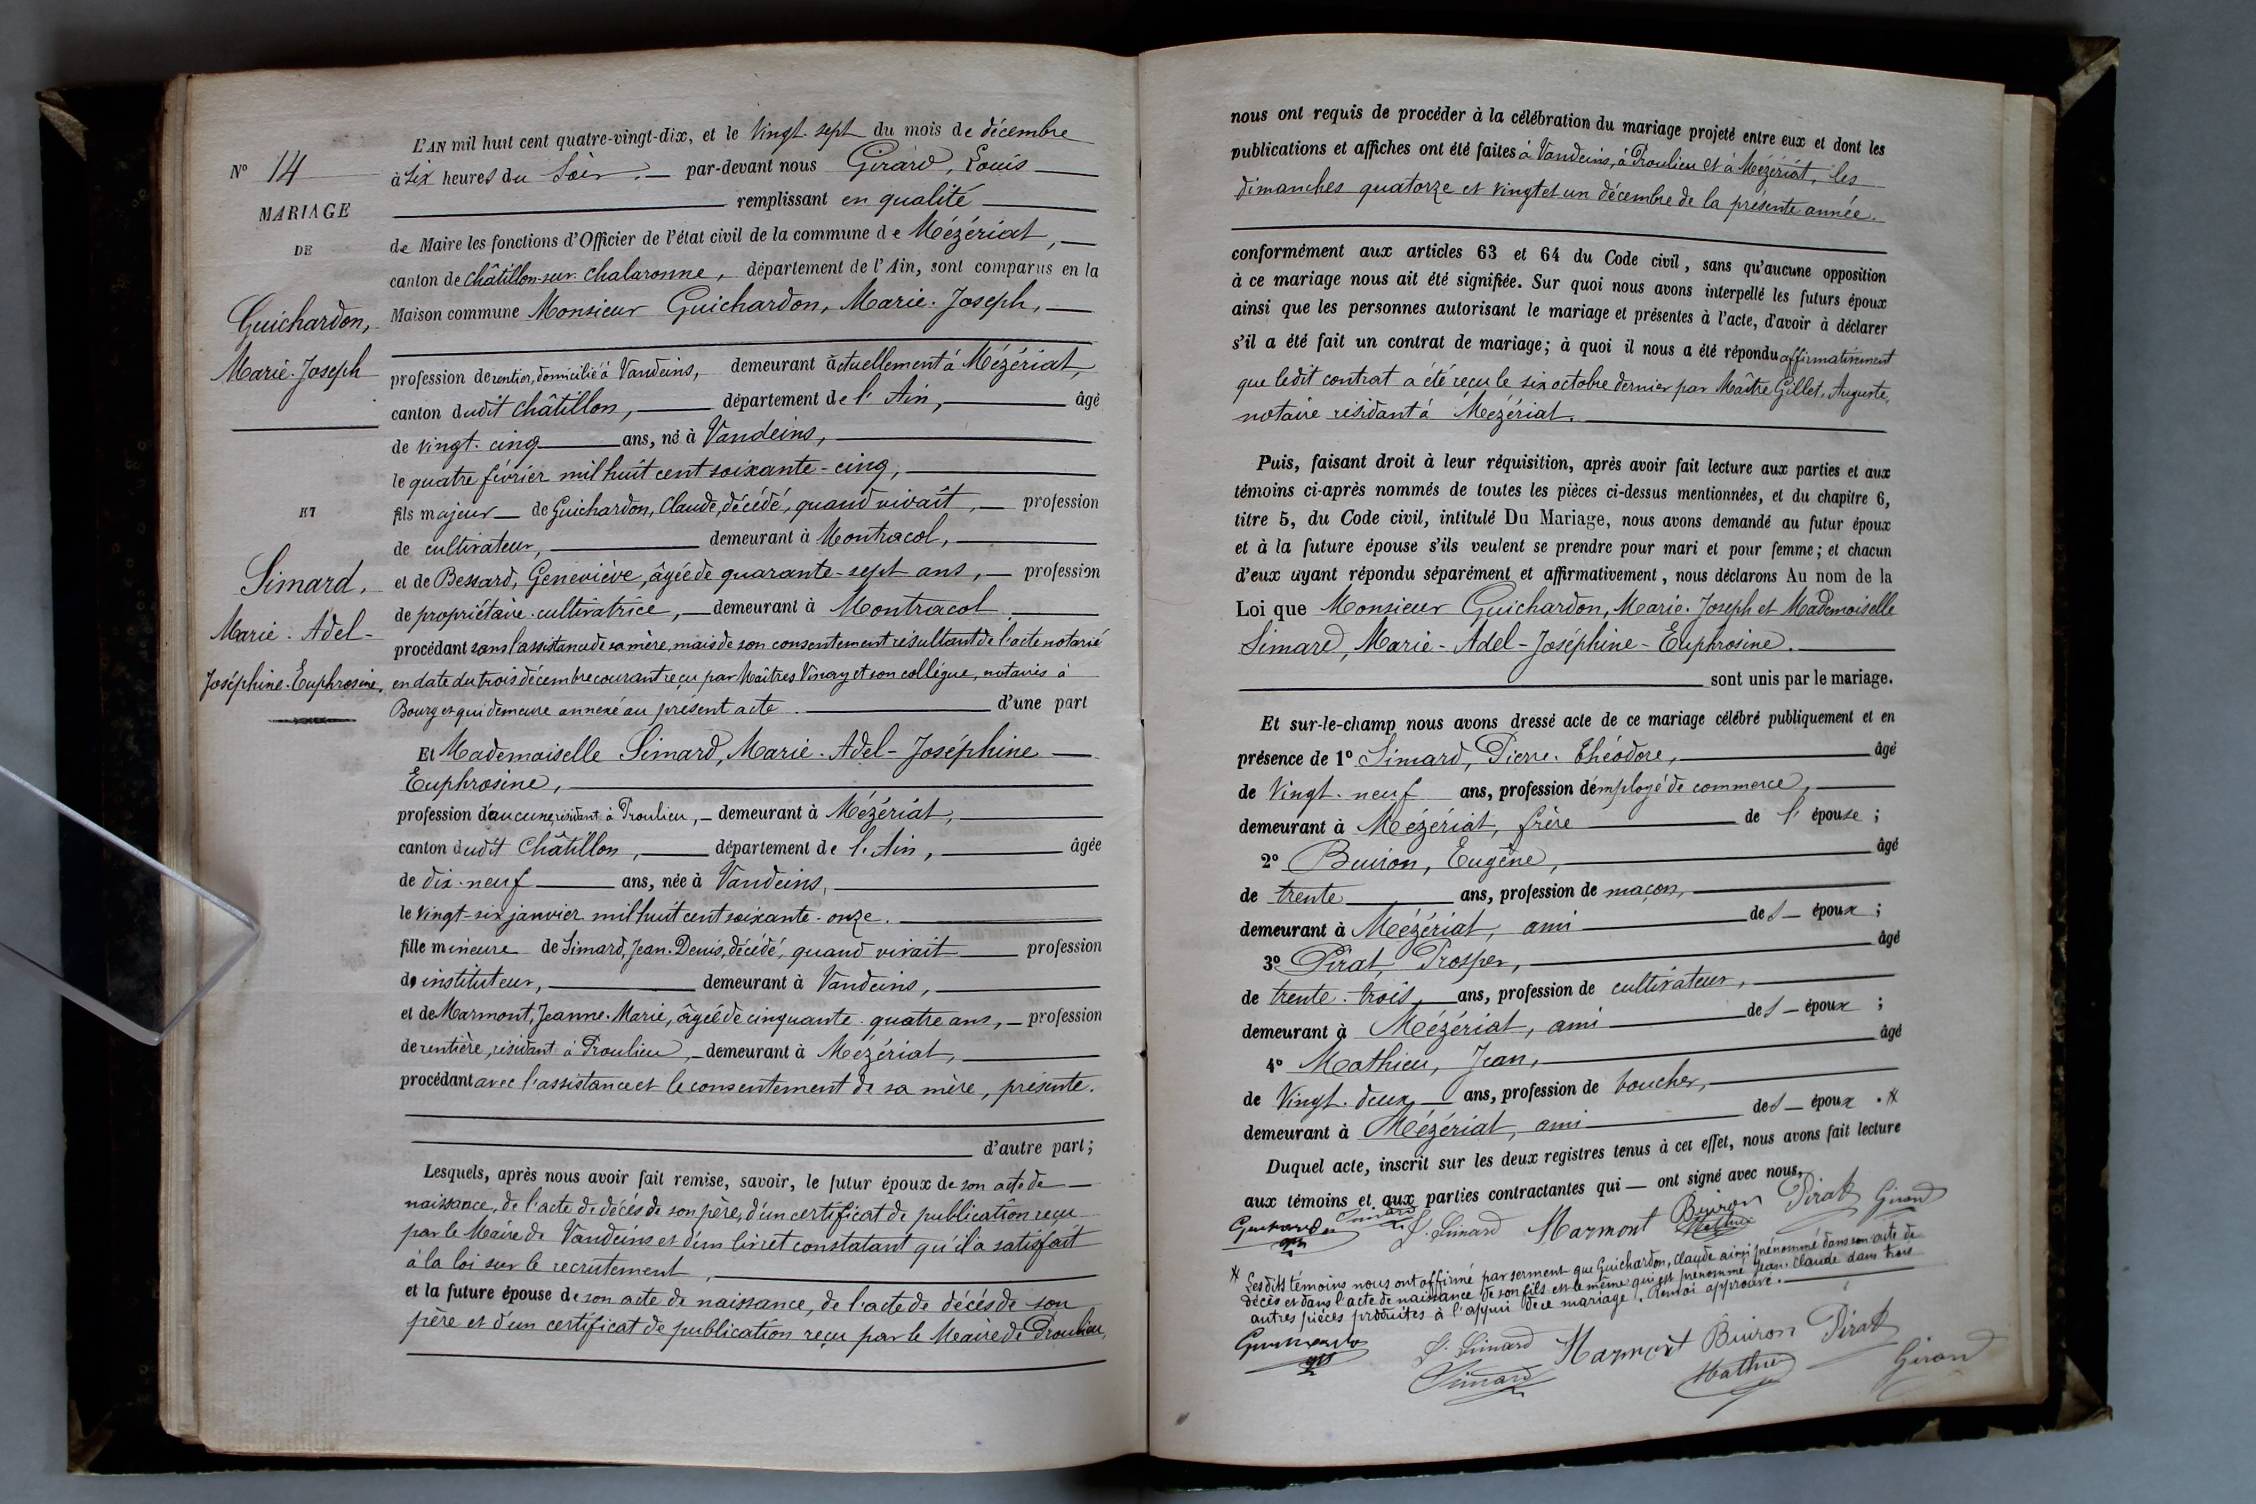 N° 14
MARIAGE
DE
Guichardon,
Marie-Joseph
ET
Simard,
Marie-Adel-
Joséphine-Euphrosine,
L'AN mil huit cent quatre-vingt-dix, et le Vingt-sept du mois de décembre
à Six heures du Soir, par-devant nous Girard, Louis
remplissant en qualité
de Maire les fonctions d'Officier de l'état civil de la commune de Mézériat,
canton de Châtillon-sur-Chalaronne, département de l'Ain, sont comparus en la
Maison commune Monsieur Guichardon, Marie-Joseph,
profession de rentier, domicilié à Vandeins, demeurant actuellement à Mézériat,
canton dudit Châtillon, département de l'Ain, âgé
de vingt-cinq ans, né à Vandeins,
le quatre février mil huit cent soixante-cinq,
fils majeur de Guichardon, Claude, décédé, quand vivait, profession
de cultivateur, demeurant à Montracol,
et de Bessard, Geneviève, âgée de quarante-sept ans, profession
de propriétaire-cultivatrice, demeurant à Montracol
procédant sans l'assistance de sa mère, mais de son consentement résultant de l'acte notarié
en date du trois décembre courant reçu par Maîtres Vinay et son collègue, notaires à
Bourg et qui demeure annexé au présent acte. d'une part
Et Mademoiselle Simard, Marie-Adel-Joséphine
Euphrosine,
profession d'aucune, résidant à Proulieu, demeurant à Mézériat,
canton dudit Châtillon, département de l'Ain, âgée
de dix-neuf ans, née à Vandeins,
le vingt-six janvier mil huit cent soixante-onze.
fille mineure de Simard, Jean-Denis, décédé, quand vivait profession
de instituteur, demeurant à Vandeins,
et de Marmont, Jeanne-Marie, âgée de cinquante-quatre ans, profession
de rentière, résidant à Proulieu, demeurant à Mézériat,
procédant avec l'assistance et le consentement de sa mère, présente.
d'autre part;
Lesquels, après nous avoir fait remise, savoir, le futur époux de son acte de
naissance, de l'acte de décès de son père, d'un certificat de publication reçu
par le Maire de Vandeins et d'un livret constatant qu'il a satisfait
à la loi sur le recrutement,
et la future épouse de son acte de naissance, de l'acte de décès de son
père et d'un certificat de publication reçu par le Maire de Proulieu,
nous ont requis de procéder à la célébration du mariage projeté entre eux et dont les
publications et affiches ont été faites à Vandeins, à Proulieu et à Mézériat, les
dimanches quatorze et vingt et un décembre de la présente année.
conformément aux articles 63 et 64 du Code civil, sans qu'aucune opposition
à ce mariage nous ait été signifiée. Sur quoi nous avons interpellé les futurs époux
ainsi que les personnes autorisant le mariage et présentes à l'acte, d'avoir à déclarer
s'il a été fait un contrat de mariage; à quoi il nous a été répondu affirmativement
que ledit contrat a été reçu le six octobre dernier par Maître Gillet, Auguste,
notaire résidant à Mézériat.
Puis, faisant droit à leur réquisition, après avoir fait lecture aux parties et aux
témoins ci-après nommés de toutes les pièces ci-dessus mentionnées, et du chapitre 6,
titre 5, du Code civil, intitulé Du Mariage, nous avons demandé au futur époux
et à la future épouse s'ils veulent se prendre pour mari et pour femme; et chacun
d'eux ayant répondu séparément et affirmativement, nous déclarons Au nom de la
Loi que Monsieur Guichardon, Marie-Joseph et Mademoiselle
Simard, Marie-Adel-Joséphine-Euphrosine.
sont unis par le mariage.
Et sur-le-champ nous avons dressé acte de ce mariage célébré publiquement et en
présence de 1° Simard, Pierre-Théodore, âgé
de Vingt-neuf ans, profession d'employé de commerce,
demeurant à Mézériat, frère de l'épouse;
2° Buiron, Eugène, âgé
de trente ans, profession de maçon,
demeurant à Mézériat, ami des époux;
3° Pirat, Prosper, âgé
de trente-trois, ans, profession de cultivateur,
demeurant à Mézériat, ami des époux;
4° Mathieu, Jean, âgé
de Vingt-deux ans, profession de boucher,
demeurant à Mézériat, ami des époux.*
Duquel acte, inscrit sur les deux registres tenus à cet effet, nous avons fait lecture
aux témoins et aux parties contractantes qui ont signé avec nous,
Guichardon Simard J. Simard Marmont Buiron Mathieu Pirat Girard
* Lesdits témoins nous ont affirmé par serment que Guichardon, Claude ainsi prénommé dans son acte de
décès et dans l'acte de naissance de son fils est le même qui est prénommé Jean-Claude dans trois
autres pièces produites à l'appui de ce mariage. Renvoi approuvé.
Guichardon J. Simard Marmont Buiron Pirat
Simard Mathieu Girard